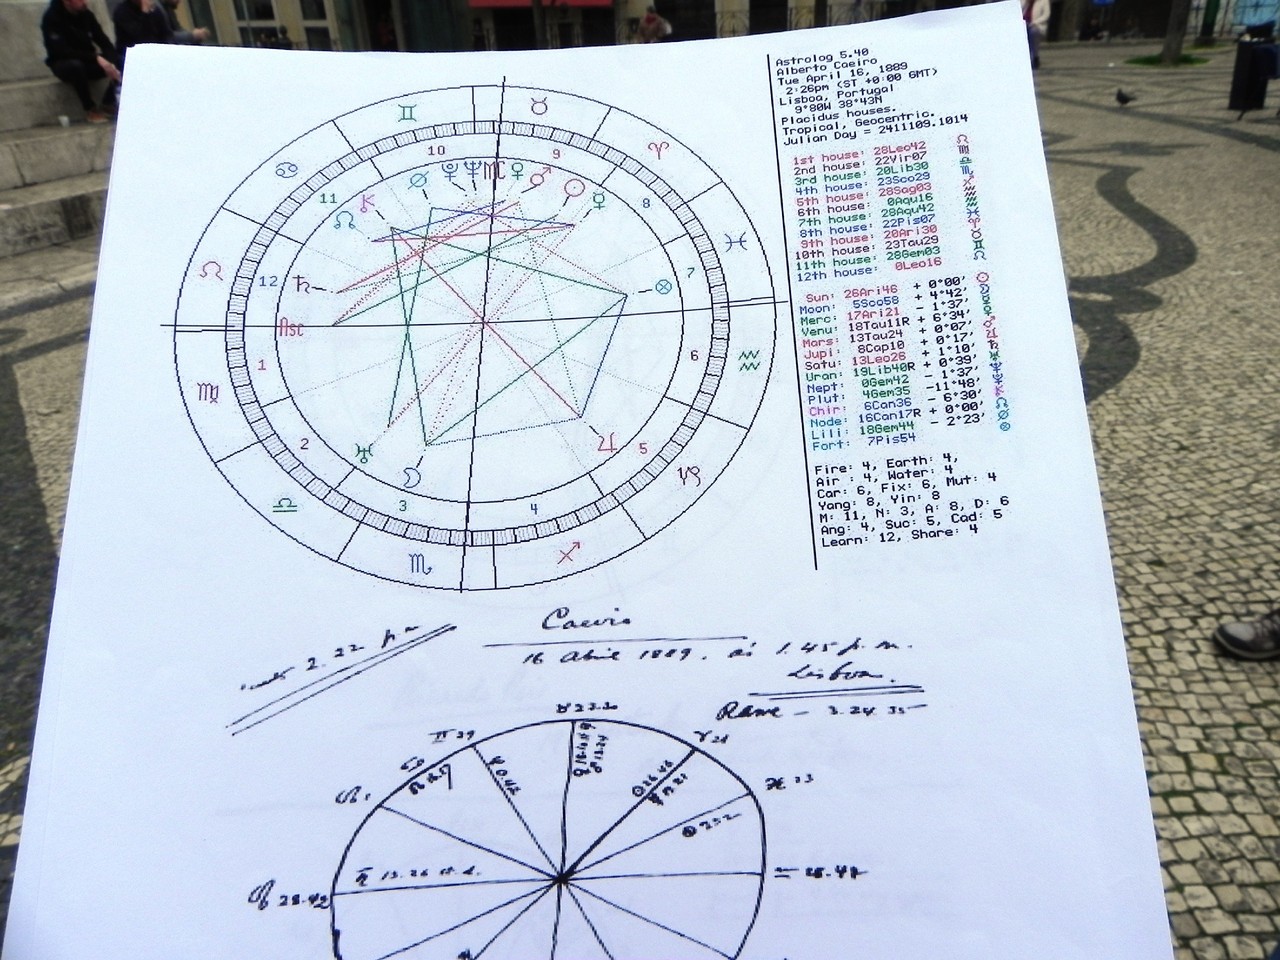 Astrolog 5.40
Alberto Caeiro
Tue April 16, 1889
2:26pm (ST +0:00 GMT)
Lisboa, Portugal
9°80W 38°43N
Placidus houses.
Tropical, Geocentric.
Julian Day = 2411109.1014
1st house: 28Leo42 ♌
2nd house: 22Vir07 ♍
3rd house: 20Lib30 ♎
4th house: 23Sco29 ♏
5th house: 28Sag03 ♐
6th house: 0Aqu16 ♒
7th house: 28Aqu42 ♒
8th house: 22Pis07 ♓
9th house: 20Ari30 ♈
10th house: 23Tau29 ♉
11th house: 28Gem03 ♊
12th house: 0Leo16 ♌
Sun: 26Ari46 + 0°00'
Moon: 5Sco58 + 4°42'
Merc: 17Ari21 - 1°37'
Venu: 18Tau11R + 6°34'
Mars: 13Tau24 + 0°07'
Jupi: 8Cap10 + 0°17'
Satu: 13Leo26 + 1°10'
Uran: 19Lib40R + 0°39'
Nept: 0Gem42 - 1°37'
Plut: 4Gem35 -11°48'
Chir: 6Can36 - 6°30'
Node: 16Can17R + 0°00'
Lili: 18Gem44 - 2°23'
Fort: 7Pis54
Fire: 4, Earth: 4,
Air : 4, Water: 4
Car: 6, Fix: 6, Mut: 4
Yang: 8, Yin: 8
M: 11, N: 3, A: 8, D: 6
Ang: 4, Suc: 5, Cad: 5
Learn: 12, Share: 4
10 9
11 8
MC
12 7
Asc
1 6
2 5
3 4
Caeiro
2.22 pm
16 Abril 1889. ás 1.45 p.m.
Lisboa.
Rame - 3.24.35
♉ 23.30
♊ 29
♈ 21
♋
♓ 23
♌ 1
♆ 0.42
☉ 26.46
♄ 13.26
♒ 28.42
♌ 28.42